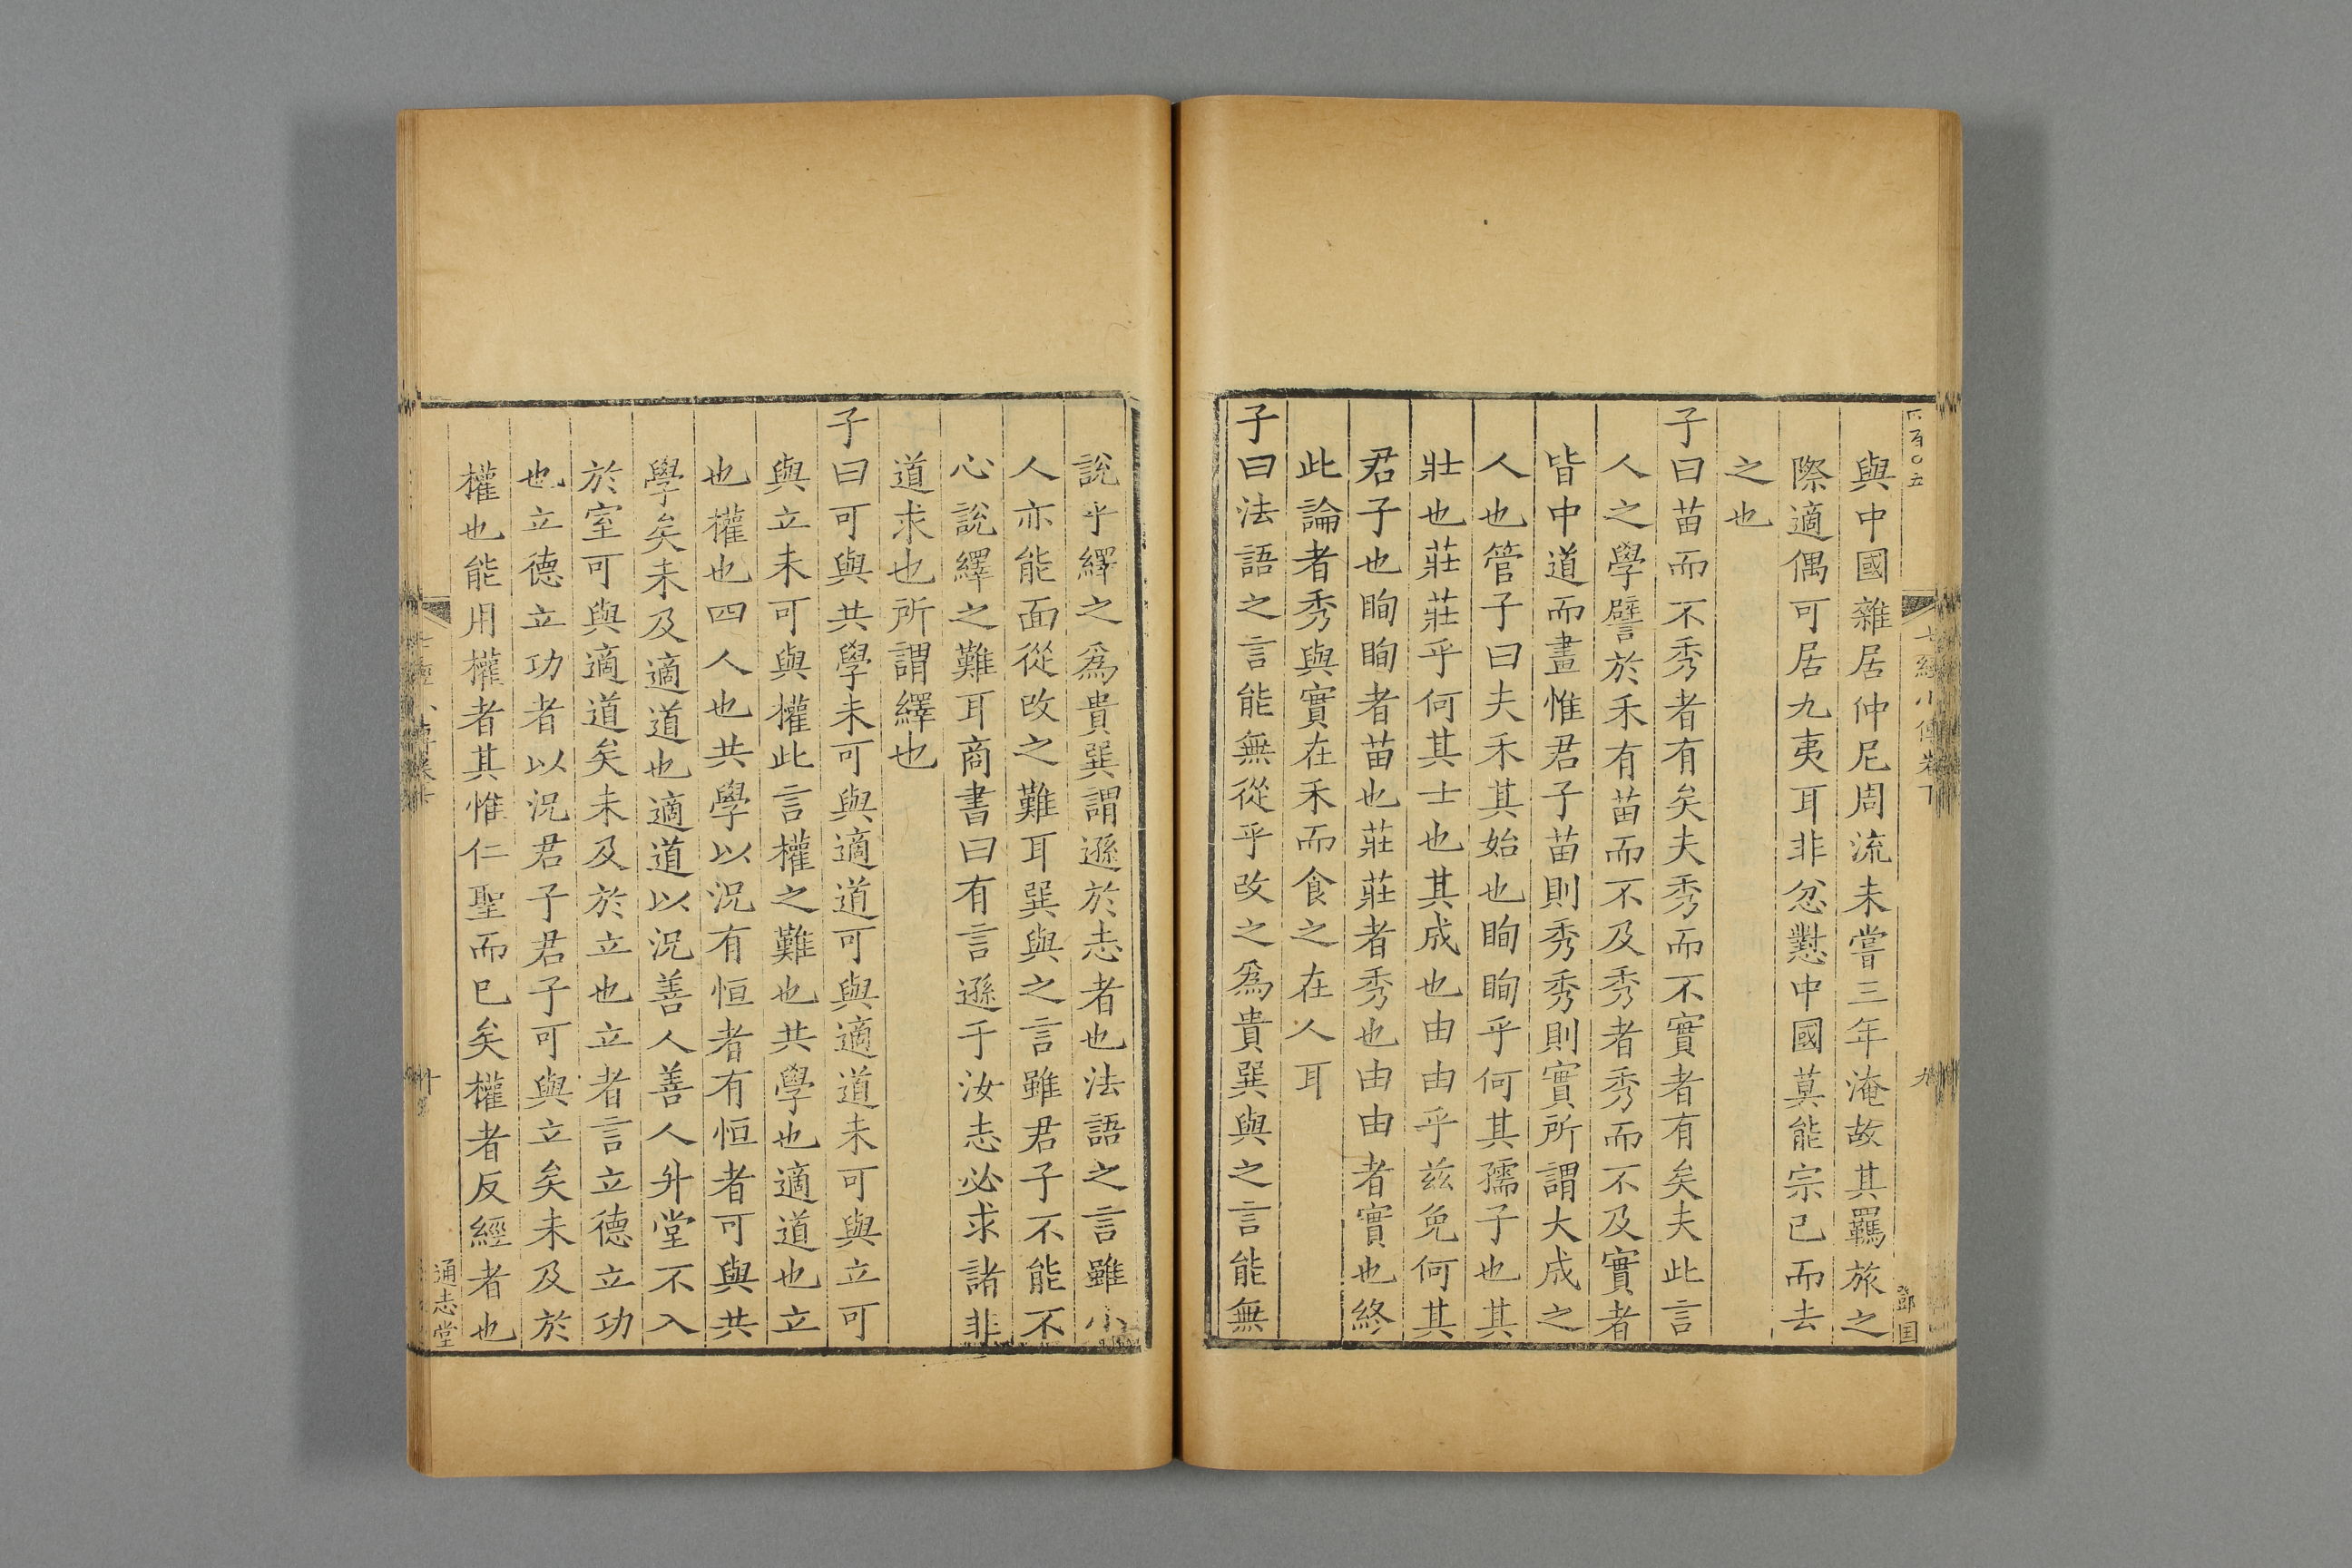 四百〇五
七經小傳卷下
九
鄧国
與中國雜居仲尼周流未嘗三年淹故其羈旅之
際適偶可居九夷耳非忿懟中國莫能宗已而去
之也
子曰苗而不秀者有矣夫秀而不實者有矣夫此言
人之學譬於禾有苗而不及秀者秀而不及實者
皆中道而畫惟君子苗則秀秀則實所謂大成之
人也管子曰夫禾其始也眴眴乎何其孺子也其
壯也莊莊乎何其士也其成也由由乎兹免何其
君子也眴眴者苗也莊莊者秀也由由者實也終
此論者秀與實在禾而食之在人耳
子曰法語之言能無從乎改之爲貴巽與之言能無
說乎繹之爲貴巽謂遜於志者也法語之言雖小
人亦能面從改之難耳巽與之言雖君子不能不
心說繹之難耳商書曰有言遜于汝志必求諸非
道求也所謂繹也
子曰可與共學未可與適道可與適道未可與立可
與立未可與權此言權之難也共學也適道也立
也權也四人也共學以況有恒者有恒者可與共
學矣未及適道也適道以況善人善人升堂不入
於室可與適道矣未及於立也立者言立德立功
也立德立功者以況君子君子可與立矣未及於
權也能用權者其惟仁聖而已矣權者反經者也
通志堂